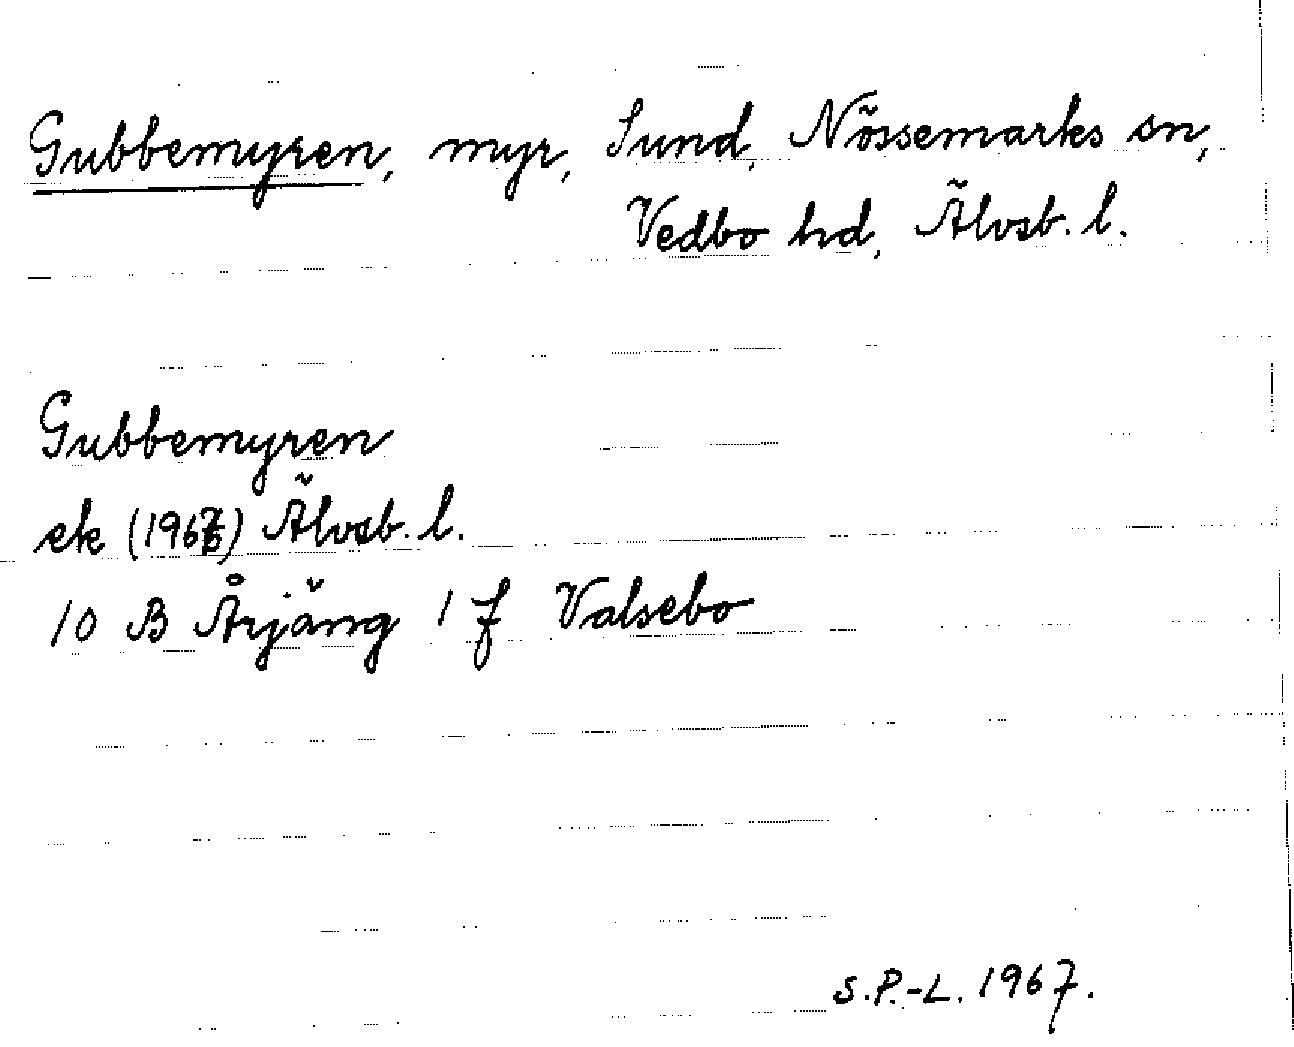 Gubbemyren, myr, Sund, Nössemarks sn,
Vedbo hd, Älvsb. l.
Gubbemyren
ek (1967) Älvsb. l.
10 B Årjäng 1 f Valsebo
S.P.-L. 1967.